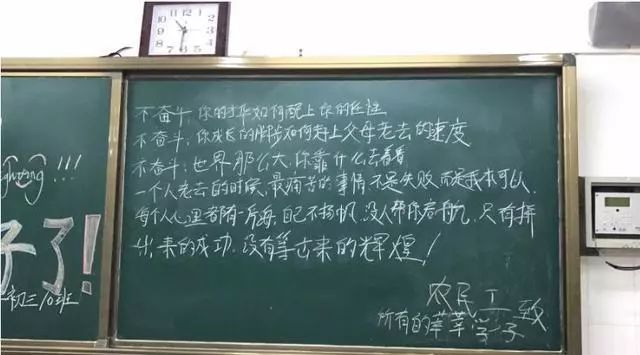 不奋斗,你的才华如何配上你的任性
不奋斗,你成长的脚步如何赶上父母老去的速度
不奋斗,世界那么大,你靠什么去看看
一个人老去的时候,最痛苦的事情不是失败,而是我本可以,
每个人心里都有一片海,自己不扬帆,没人帮你启航,只有拼
出来的成功,没有等出来的辉煌!
农民工致
所有的莘莘学子
!!!
子了!
初三10班